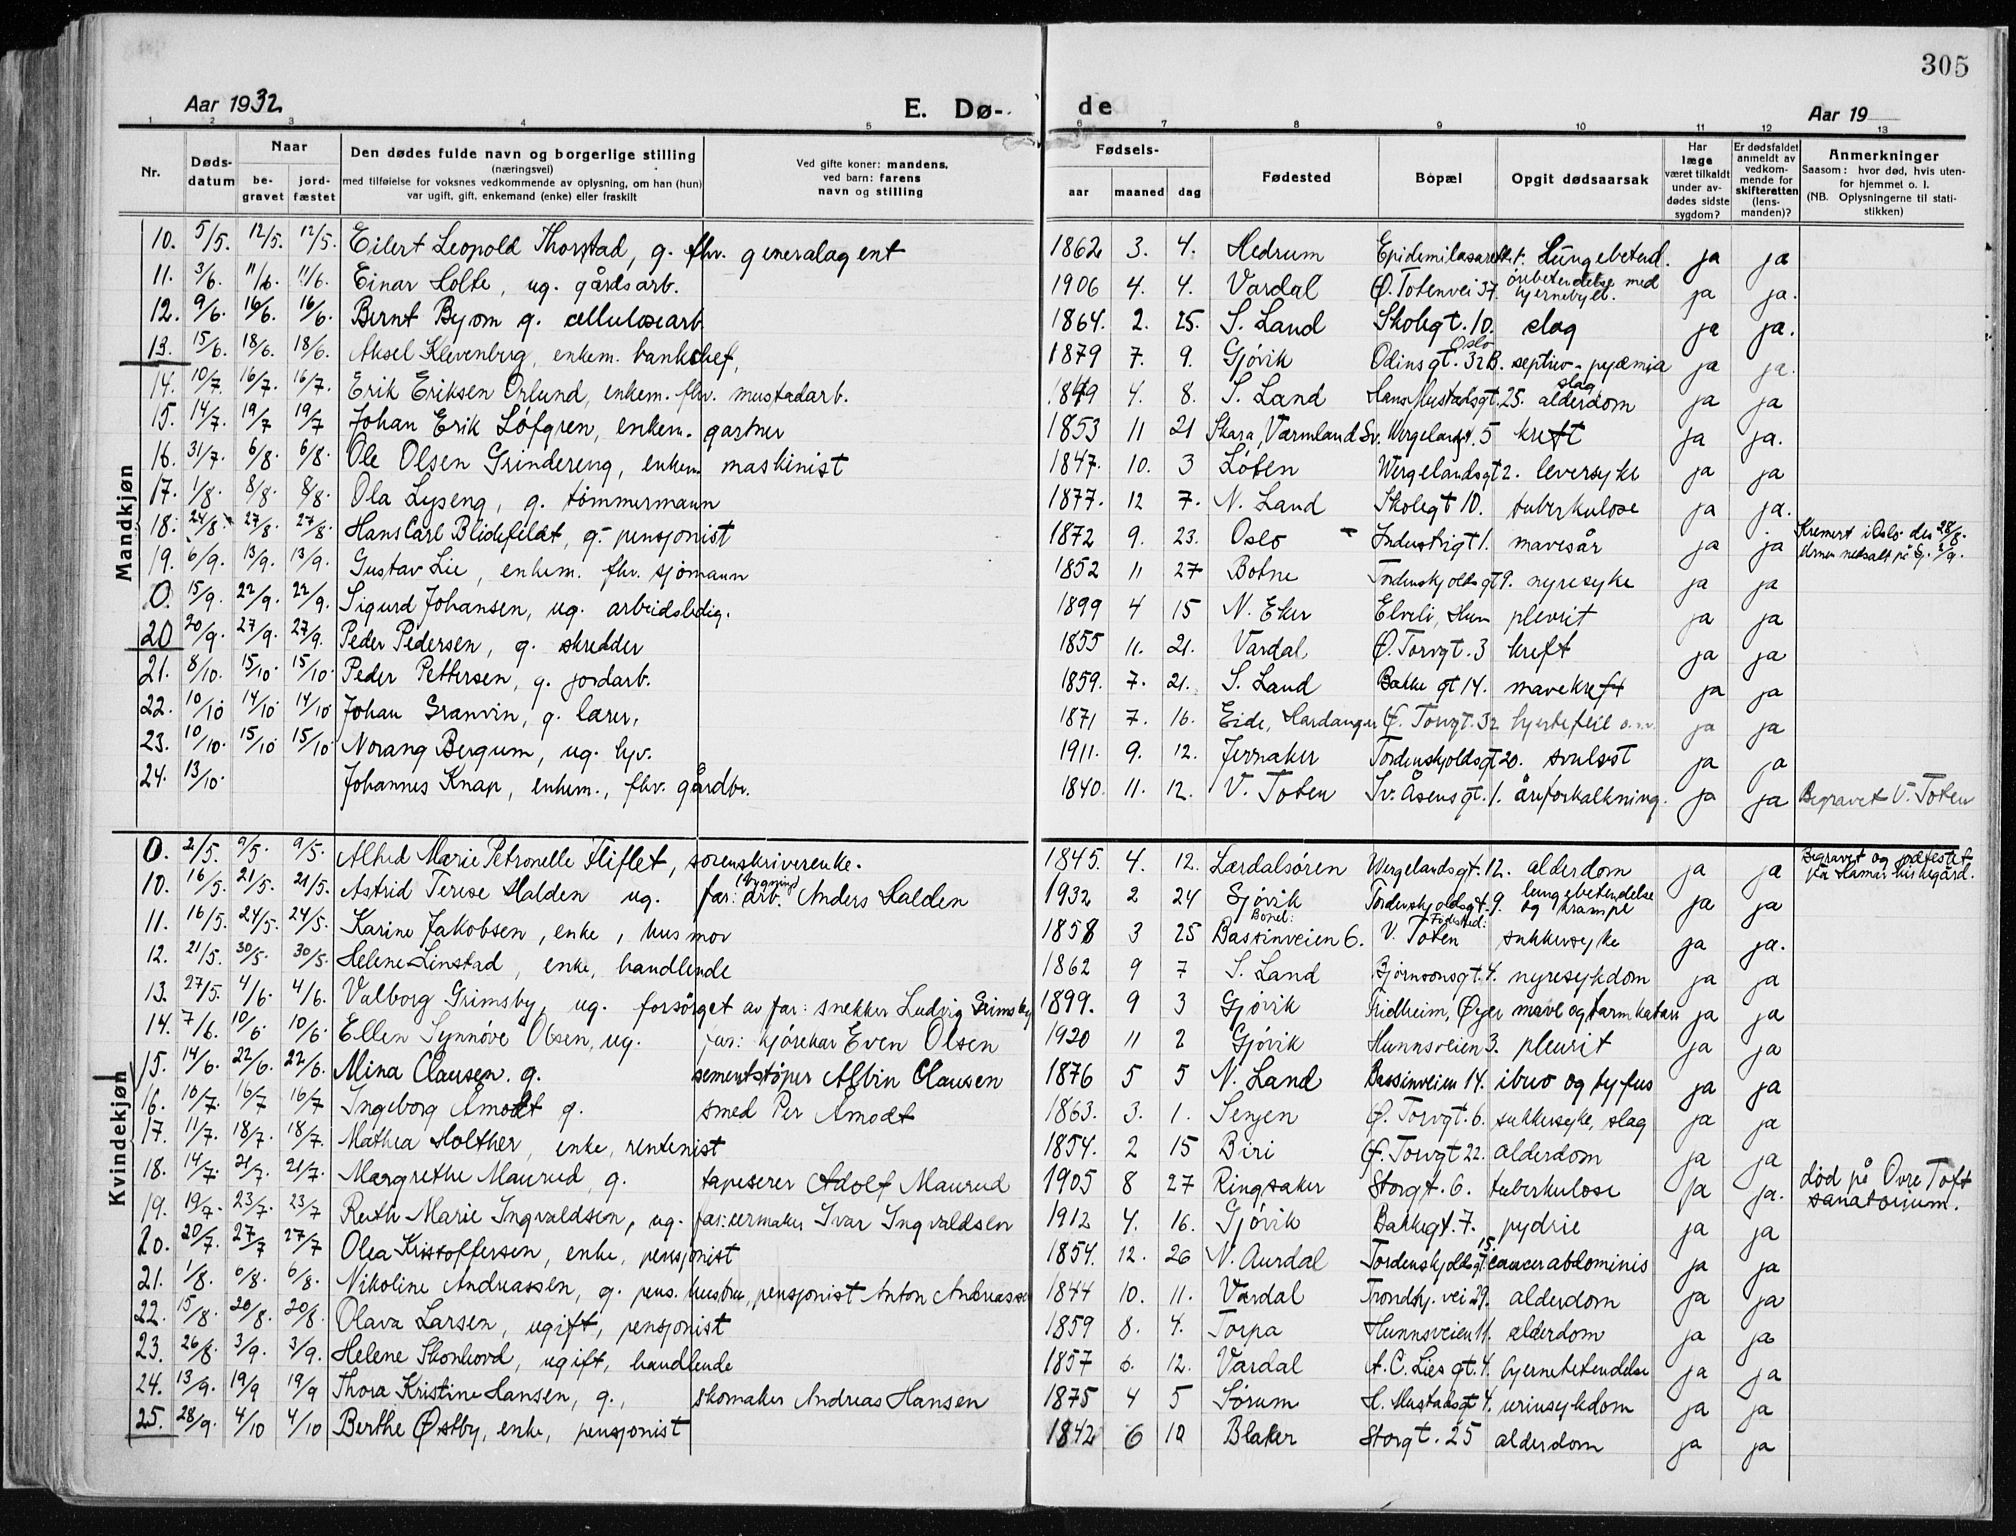 305
Aar 1932 E. Dø- de Aar 19
1 2 3 4 5 6 7 8 9 10 11 12 13
Nr. Døds-datum Naar be-gravet jord-fæstet Den dødes fulde navn og borgerlige stilling (næringsvei) med tilføielse for voksnes vedkommende av oplysning, om han (hun) var ugift, gift, enkemand (enke) eller fraskilt Ved gifte koner: mandens, ved barn: farens navn og stilling Fødsels- aar maaned dag Fødested Bopæl Opgit dødsaarsak Har læge været tilkaldt under av-dødes sidste sygdom? Er dødsfaldet anmeldt av vedkom-mende for skifteretten (lens-manden)? Anmerkninger Saasom: hvor død, hvis uten-for hjemmet o. l. (NB. Oplysningerne til stati-stikken)
Mandkjøn
10. 5/5. 12/5. 12/5. Eilert Leopold Thorstad, g. fhv. generalagent 1862 3. 4. Hedrum Epidemilasarettet. Lungebetend. ja ja
11. 3/6. 11/6. 11/6. Einar Holte, ug. gårdsarb. 1906 4. 4. Vardal Ø. Totenvei 37. ørebetendelse med hjernebyld. ja ja.
12. 9/6. 16/6. 16/6. Bernt Byom g. cellulosearb 1864. 2. 25. S. Land Skolegt. 10. slag ja ja.
13. 15/6. 18/6. 18/6. Aksel Klevenberg, enkem. bankchef, 1879 7. 9. Gjøvik Odinsgt. 32B. Oslo septico-pyæmia ja ja.
14. 10/7. 16/7. 16/7. Erik Eriksen Orlund, enkem. fhv. mustadarb. 1849 4. 8. S. Land Hans Mustadsgt. 25. slag alderdom ja ja
15. 14/7. 19/7 19/7 Johan Erik Løfgren, enkem. gartner 1853 11 21 Skara, Værmland Sv. Wergelandsgt. 5 kreft ja ja.
16. 31/7. 6/8. 6/8. Ole Olsen Grindereng, enkem maskinist 1847. 10. 3 Løten Wergelandsgt 2. leversyke ja ja
17. 1/8. 8/8. 8/8. Ola Lyseng, g. tømmermann 1877. 12 7. N. Land Skolegt 10. tuberkulose ja ja.
18. 24/8. 27/8. 27/8. Hans Carl Blidefeldt, g. pensjonist 1872 9. 23. Oslo Industrigt 1. mavesår ja ja Kremert i Oslo den 28/8. Urnen nedsatt på Gj. 2/9.
19. 6/9. 13/9. 13/9. Gustav Lie, enkem. fhv. sjømann 1852 11 27 Botne Tordenskjoldsgt 9. nyresyke ja ja
0. 15/9. 22/9. 22/9. Sigurd Johansen, ug. arbeidsledig. 1899 4 15 N. Eker Elveli, Hun plevrit ja ja
20 20/9. 27/9. 27/9. Peder Pedersen, g. skredder 1855 11. 21. Vardal Ø. Torvgt. 3 kreft ja ja
21. 8/10. 15/10. 15/10. Peder Pettersen, g. jordarb. 1859. 7. 21. S. Land Bakkegt 14. mavekreft ja ja
22. 10/10 14/10 14/10 Johan Granvin, g. lærer, 1871 7. 16. Eide, Hardanger Ø. Torvgt. 32 hjertefeil o.s.v. ja ja
23. 10/10. 15/10 15/10 Norang Bergum, ug. hjv. 1911. 9. 12. Jevnaker Tordenskjoldsgt 20. svulsst ja ja
24. 13/10. Johannes Knap, enkem., fhv. gårdbr. 1840. 11. 12. V. Toten Iv. Åsensgt. 1. åreforkalkning. ja ja Begravet V. Toten
Kvindekjøn
0. 2/5. 9/5. 9/5. Alhed Marie Petronelle Fliflet, sorenskriverenke. 1845. 4. 12. Lærdalsøren Wergelandsgt. 12. alderdom ja ja Begravet og jordfestet på Hamar kirkegård.
10. 16/5. 21/5. 21/5. Astrid Terese Halden ug. far: (bygning) arb. Anders Halden 1932 2 24 Gjøvik Tordenskjoldsgt. 9. lungebetendelse og krampe ja ja
11. 16/5. 24/5. 24/5. Karine Jakobsen, enke, husmor 1858 3 25 Bopel: Bassinveien 6. Fødested: V. Toten sukkersyke ja ja.
12. 21/5. 30/5. 30/5. Helene Linstad, enke, handlende 1862 9 7 S. Land Bjørnsonsgt. 4. nyresykdom ja ja
13. 27/5. 4/6. 4/6. Valborg Grimsby, ug. forsørget av far: snekker Ludvig Grimsby 1899. 9 3 Gjøvik Fridheim, Øger mave og tarmkatarr ja ja
14. 7/6. 10/6 10/6 Ellen Synnøve Olsen, ug. far: kjørekar Even Olsen 1920 11 2 Gjøvik Hunnsveien 3. pleurit ja ja
15. 14/6. 22/6. 22/6. Mina Clausen. g. sementstøper Albin Clausen 1876 5 5 N. Land Bassinveien 14. ibuo og tyfus ja ja
16. 10/7. 16/7 16/7 Ingeborg Åmodt g. smed Per Åmodt 1863. 3. 1. Senjen Ø. Torvgt. 6. sukkersyke, slag ja ja
17. 11/7. 18/7. 18/7. Mathea Holther, enke, rentenist 1854. 2 15 Biri Ø. Torvgt 22. alderdom ja ja
18. 14/7. 21/7. 21/7. Margrethe Maurud, g. tapeserer Adolf Maurud 1905 8 27 Ringsaker Storgt. 6. tuberkulose ja ja. død på Øvre Toft sanatorium.
19. 19/7. 23/7. 23/7 Ruth Marie Ingvaldsen, ug. far: urmaker Ivar Ingvaldsen 1912 4. 16. Gjøvik Bakkegt. 7. pydrie ja ja
20. 20/7. 27/7 27/7 Olea Kristoffersen, enke, pensjonist 1854. 12. 26 N. Aurdal Tordenskjoldsgt. 15. cancer abdominis ja ja
21. 1/8. 6/8. 6/8. Nikoline Andreassen, g. pens. hustru, pensjonist Anton Andreassen 1844 10. 11. Vardal Trondhj. vei 29. alderdom ja ja
22. 15/8. 20/8. 20/8. Olava Larsen, ugift, pensjonist 1859 8. 4. Torpa Hunnsveien 11. alderdom ja ja
23. 26/8. 3/9. 3/9. Helene Skonhovd, ugift, handlende 1857 6. 12. Vardal A. C. Lies gt. 4. hjernebetendelse ja ja
24. 13/9. 19/9 19/9 Thora Kristine Hansen, g., skomaker Andreas Hansen 1875 4 5 Sørum H. Mustadsgt 4. urinsykdom ja ja
25. 28/9. 4/10 4/10 Berthe Østby, enke, pensjonist 1842 6 10 Blaker Storgt. 25 alderdom ja ja